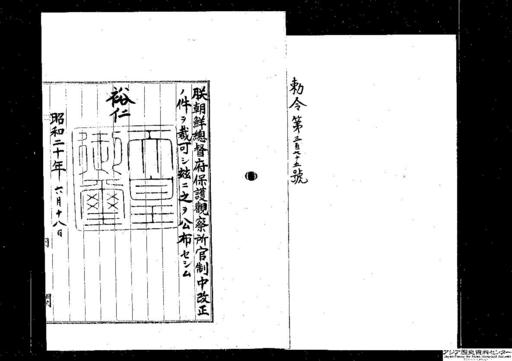 勅令第三百七十五號
朕朝鮮總督府保護觀察所官制中改正
ノ件ヲ裁可シ玆ニ之ヲ公布セシム
裕仁
天皇御璽
昭和二十年六月十八日
アジア歴史資料センター